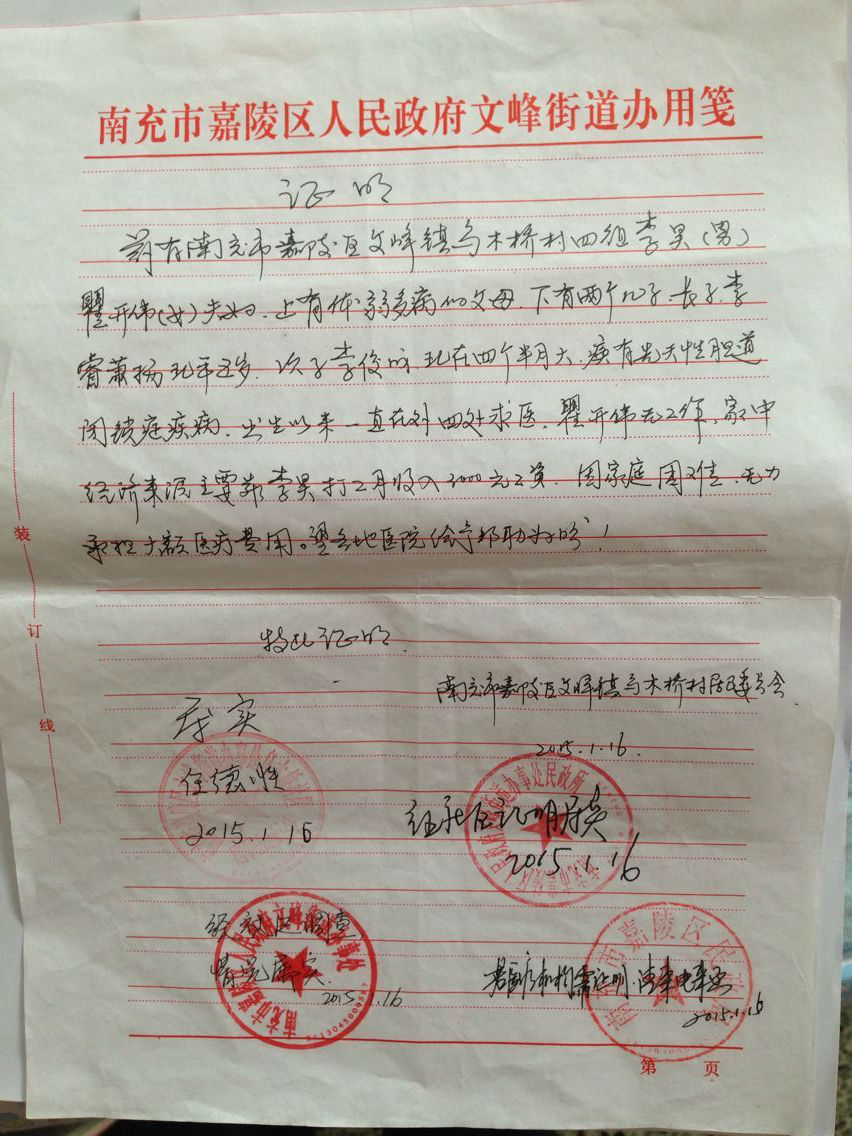 南充市嘉陵区人民政府文峰街道办用笺
证明
兹有南充市嘉陵区文峰镇乌木桥村四组李昊(男)
瞿开伟(女)夫妇.上有体弱多病的父母.下有两个儿子.长子李
睿萧扬现年五岁.次子李俊 现在四个半月大.患有先天性胆道
闭锁症疾病.出生以来一直在外四处求医.瞿开伟无工作,家中
经济来源主要靠李昊打工月收入2000元工资.因家庭困难.无力
承担大额医疗费用。望各地医院给予帮助为盼!
装
订
线
特此证明.
南充市嘉陵区文峰镇乌木桥村居民委员会
2015.1.16.
属实
任德
2015.1.16
经社区证明属实
2015.1.16
经 社区调查,
情况属实.
2015.1.16
2015.1.16
第 页